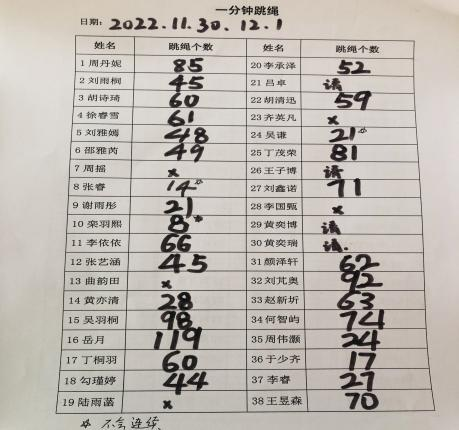 一分钟跳绳
日期: 2022.11.30.12.1
姓名 跳绳个数 姓名 跳绳个数
1 周丹妮 85 20 李承泽 52
2 刘雨桐 45 21 吕卓 请
3 胡诗琦 60 22 胡清迅 59
4 徐睿雪 61 23 齐英凡 x
5 刘雅嫣 48 24 吴谦 21☆
6 邵雅芮 49 25 丁茂荣 81
7 周摇 x 26 王子博 请
8 张睿 14☆ 27 刘鑫诺 71
9 谢雨彤 21 28 李国甄 x
10 栾羽熙 8☆ 29 黄奕博 请
11 李依依 66 30 黄奕瑞 请.
12 张艺涵 45 31 颜泽轩 62
13 曲韵田 x 32 刘芃奥 92
14 黄亦清 28 33 赵新圻 63
15 吴羽桐 98 34 何智屿 74
16 岳月 119 35 周伟灏 24
17 丁桐羽 60 36 于少齐 17
18 勾瑾婷 44 37 李睿 27
19 陆雨菡 x 38 王昱森 70
☆ 不会连续